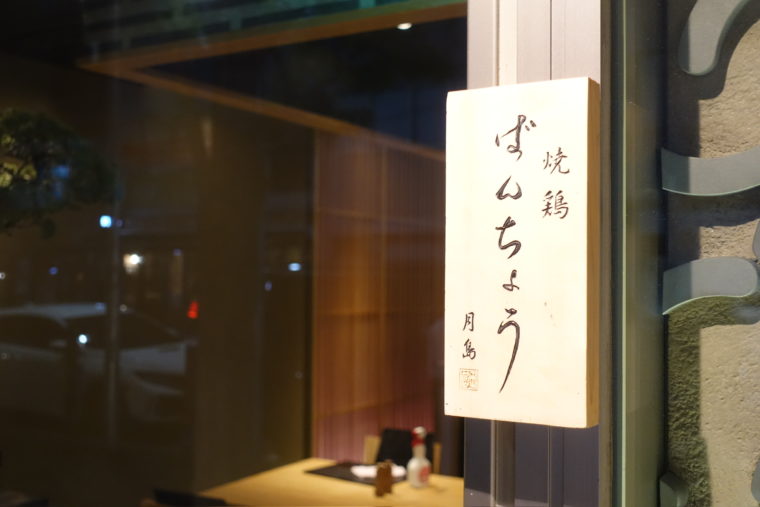 焼鶏
ばんちょう
月島